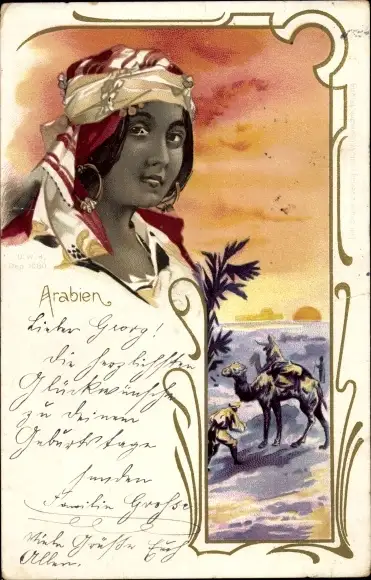 Arabien
Lieber Georg!
Die herzlichsten
Glückwünsche
zu deinem
Geburtstage
senden
Familie Grosse
Viele Grüße Euch
Allen.